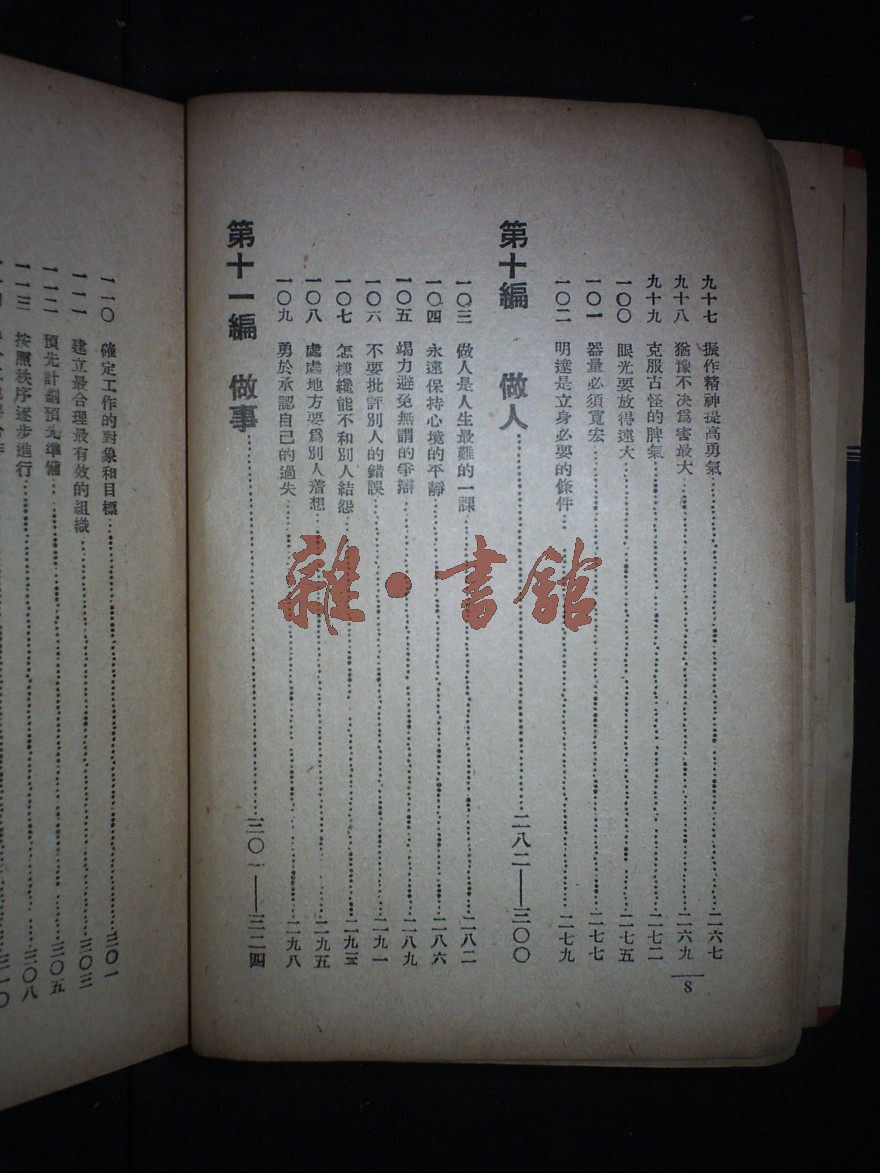 九十七　振作精神提高勇氣……二六七
九十八　猶豫不決爲害最大……二六九
九十九　克服古怪的脾氣……二七二
一〇〇　眼光要放得遠大……二七五
一〇一　器量必須寬宏……二七七
一〇二　明達是立身必要的條件……二七九
第十編　做人……二八二——三〇〇
一〇三　做人是人生最難的一課……二八二
一〇四　永遠保持心境的平靜……二八六
一〇五　竭力避免無謂的爭辯……二八九
一〇六　不要批評別人的錯誤……二九一
一〇七　怎樣纔能不和別人結怨……二九三
一〇八　處處地方要爲別人着想……二九五
一〇九　勇於承認自己的過失……二九八
第十一編　做事……三〇一——三二四
8
一一〇　確定工作的對象和目標……三〇一
一一一　建立最合理最有效的組織……三〇三
一一二　預先計劃預先準備……三〇五
一一三　按照秩序逐步進行……三〇八
三一〇
雜·書館